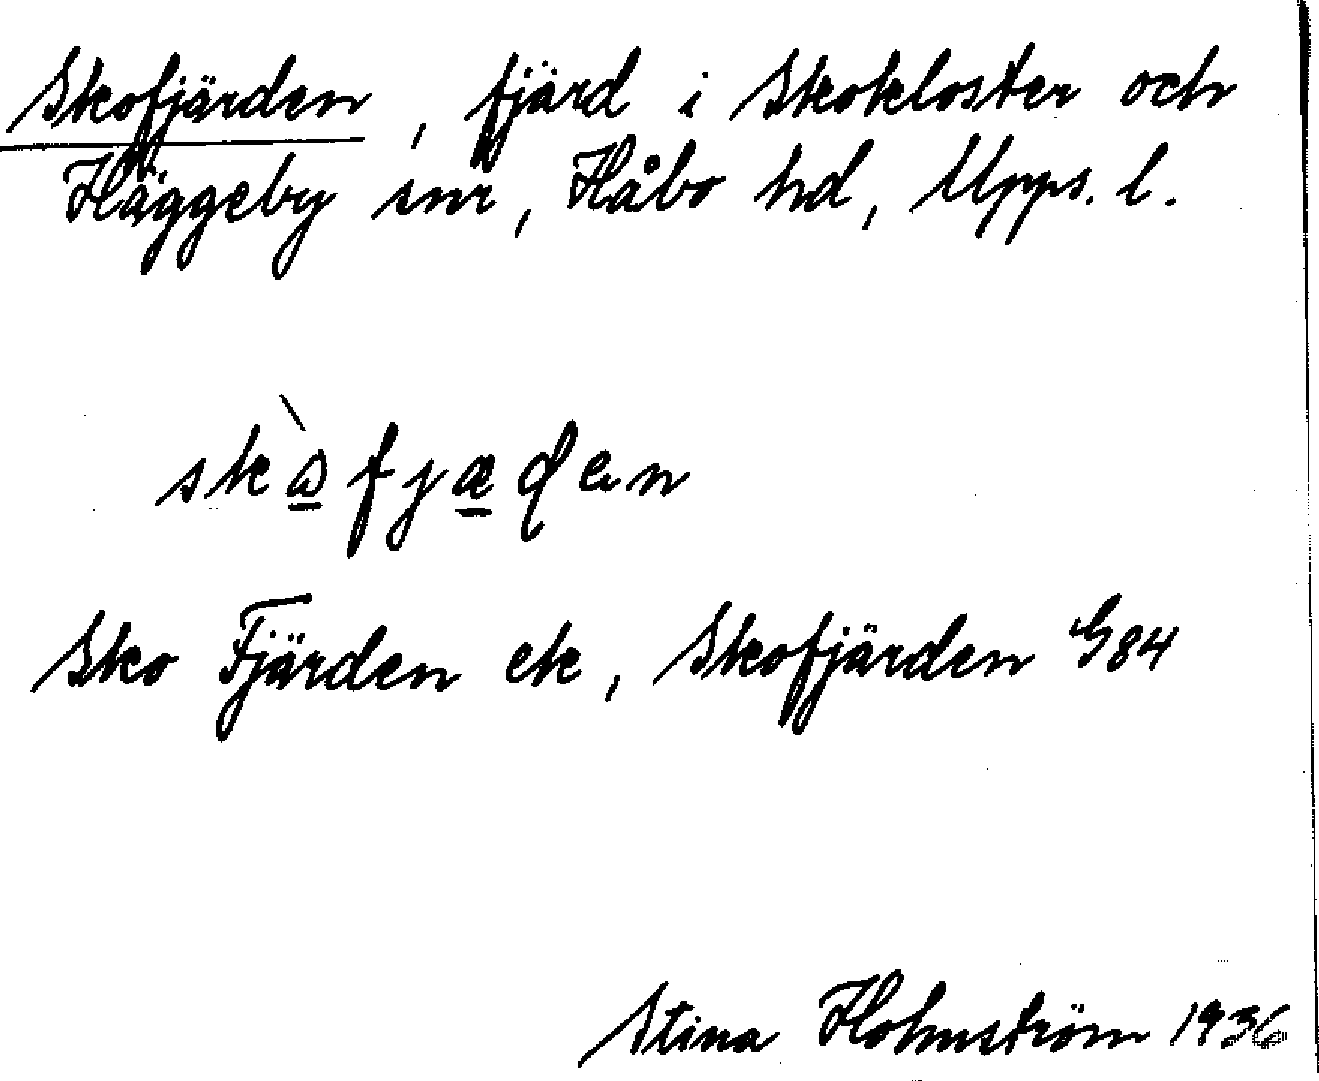 Skofjärden, fjärd i Skokloster och
Häggeby snr, Håbo hd, Upps. l.
Sko Fjärden ek, Skofjärden G84
Stina Holmström 1936